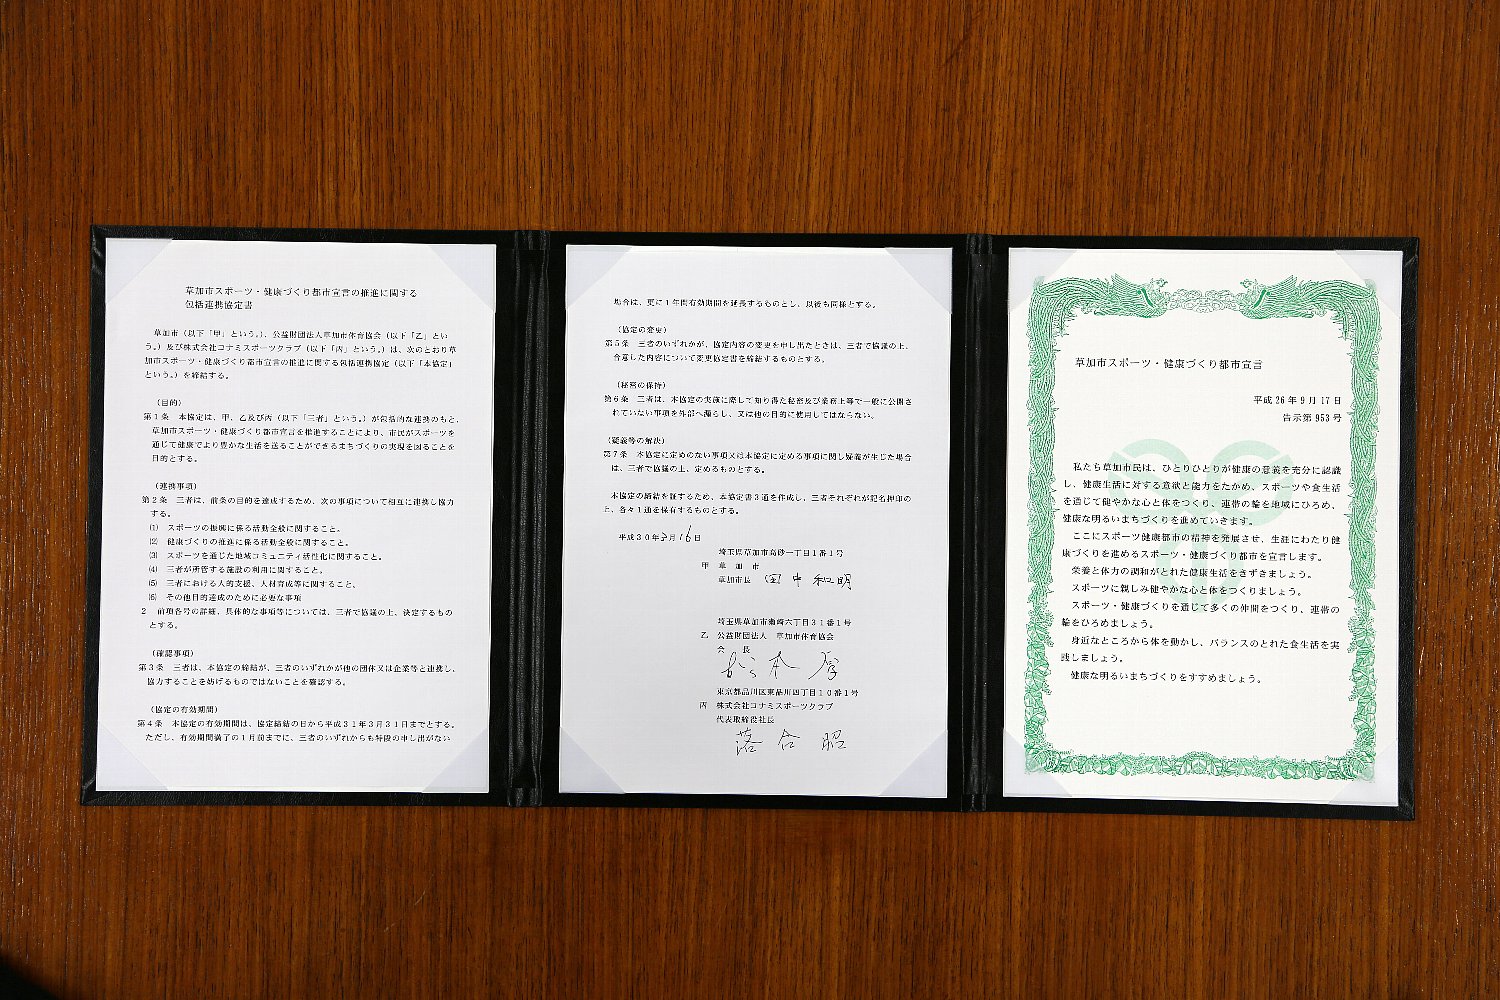 草加市スポーツ・健康づくり都市宣言の推進に関する
包括連携協定書
草加市（以下「甲」という。）、公益財団法人草加市体育協会（以下「乙」とい
う。）及び株式会社コナミスポーツクラブ（以下「丙」という。）は、次のとおり草
加市スポーツ・健康づくり都市宣言の推進に関する包括連携協定（以下「本協定」
という。）を締結する。
（目的）
第１条　本協定は、甲、乙及び丙（以下「三者」という。）が包括的な連携のもと、
草加市スポーツ・健康づくり都市宣言を推進することにより、市民がスポーツを
通じて健康でより豊かな生活を送ることができるまちづくりの実現を図ることを
目的とする。
（連携事項）
第２条　三者は、前条の目的を達成するため、次の事項について相互に連携し協力
する。
(1)　スポーツの振興に係る活動全般に関すること。
(2)　健康づくりの推進に係る活動全般に関すること。
(3)　スポーツを通じた地域コミュニティ活性化に関すること。
(4)　三者が所管する施設の利用に関すること。
(5)　三者における人的支援、人材育成等に関すること、
(6)　その他目的達成のために必要な事項
２　前項各号の詳細、具体的な事項等については、三者で協議の上、決定するもの
とする。
（確認事項）
第３条　三者は、本協定の締結が、三者のいずれかが他の団体又は企業等と連携し、
協力することを妨げるものではないことを確認する。
（協定の有効期間）
第４条　本協定の有効期間は、協定締結の日から平成３１年３月３１日までとする。
ただし、有効期間満了の１月前までに、三者のいずれからも特段の申し出がない
場合は、更に１年間有効期間を延長するものとし、以後も同様とする。
（協定の変更）
第５条　三者のいずれかが、協定内容の変更を申し出たときは、三者で協議の上、
合意した内容について変更協定書を締結するものとする。
（秘密の保持）
第６条　三者は、本協定の実施に際して知り得た秘密及び業務上等で一般に公開さ
れていない事項を外部へ漏らし、又は他の目的に使用してはならない。
（疑義等の解決）
第７条　本協定に定めのない事項又は本協定に定める事項に関し疑義が生じた場合
は、三者で協議の上、定めるものとする。
本協定の締結を証するため、本協定書３通を作成し、三者それぞれが記名押印の
上、各々１通を保有するものとする。
平成３０年３月１６日
埼玉県草加市高砂一丁目１番１号
甲　草　加　市
草加市長　田中和明
埼玉県草加市瀬崎六丁目３１番１号
乙　公益財団法人　草加市体育協会
会　長
東京都品川区東品川四丁目１０番１号
丙　株式会社コナミスポーツクラブ
代表取締役社長
落合昭
草加市スポーツ・健康づくり都市宣言
平成26年９月17日
告示第953号
私たち草加市民は、ひとりひとりが健康の意義を充分に認識
し、健康生活に対する意欲と能力をたかめ、スポーツや食生活
を通じて健やかな心と体をつくり、連帯の輪を地域にひろめ、
健康な明るいまちづくりを進めていきます。
ここにスポーツ健康都市の精神を発展させ、生涯にわたり健
康づくりを進めるスポーツ・健康づくり都市を宣言します。
栄養と体力の調和がとれた健康生活をきずきましょう。
スポーツに親しみ健やかな心と体をつくりましょう。
スポーツ・健康づくりを通じて多くの仲間をつくり、連帯の
輪をひろめましょう。
身近なところから体を動かし、バランスのとれた食生活を実
践しましょう。
健康な明るいまちづくりをすすめましょう。